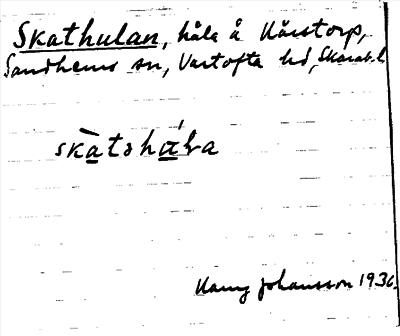 Skathulan, håla å Kårstorp,
Sandhems sn, Vartofta hd, Skarab. l
skàtshá
Johansson 1936.